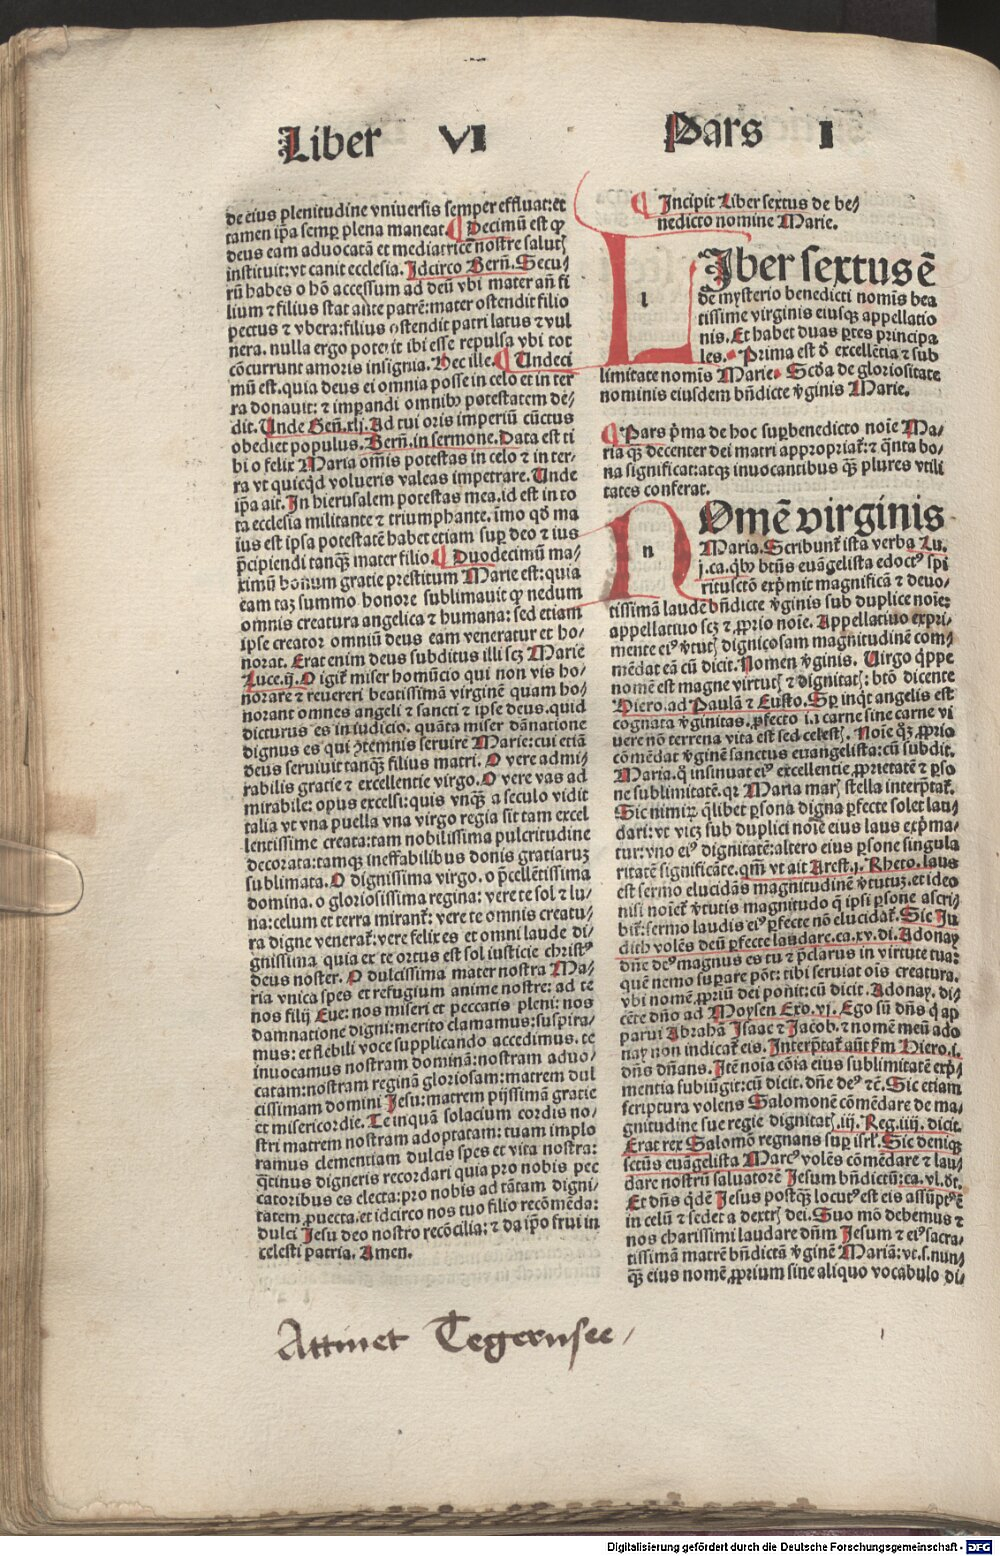 Liber VI Pars I
de eius plenitudine vniuersis semper effluat: et
tamen ip̄a semp̱ plena maneat. ¶ Decimū est qꝫ
deus eam aduocatā et mediatricē nostre salutꝭ
instituit: vt canit ecclesia. Idcirco Bern̄. Secu/
rū habes o hō accessum ad deū vbi mater an̄ fi
lium ⁊ filius stat ante patrē: mater ostendit filio
pectus ⁊ vbera: filius ostendit patri latus ⁊ vul
nera. nulla ergo poterit ibi esse repulsa vbi tot
cōcurrunt amoris insignia. Hec ille. ¶ Undeci
mū est. quia deus ei omnia posse in celo et in ter
ra donauit: ⁊ imp̱andi omnibꝰ potestatem de/
dit. Unde Gen̄. xlj. Ad tui oris imperiū cūctus
obediet populus. Bern̄. in sermone. Data est ti
bi o felix Maria om̄is potestas in celo ⁊ in ter/
ra vt quicqͥd volueris valeas impetrare. Unde
ip̄a ait. In hierusalem potestas mea. id est in to
ta ecclesia militante ⁊ triumphante. īmo qd̄ ma
ius est ipsa potestatē habet etiam sup̱ deo ⁊ ius
p̄cipiendi tanqꝫ mater filio. ¶ Duodecimū ma/
ximū bonum gratie prestitum Marie est: quia
eam taꝫ summo honore sublimauit qꝫ nedum
omnis creatura angelica ⁊ humana: sed etiam
ipse creator omniū deus eam veneratur et ho/
norat. Erat enim deus subditus illi scꝫ Marie
Luce. ij. O igit̄ miser homūcio qui non vis ho/
norare ⁊ reuereri beatissimā virginē quam ho/
norant omnes angeli ⁊ sancti ⁊ ipse deus. quid
dicturus es in iudicio. quāta miser dānatione
dignus es qui ꝯtemnis seruire Marie: cui etiā
deus seruiuit tanqꝫ filius matri. O vere admi/
rabilis gratie ⁊ excellentie virgo. O vere vas ad
mirabile: opus excelsi: quis vnqꝫ a seculo vidit
talia vt vna puella vna virgo regia sit tam excel
lentissime creata: tam nobilissima pulcritudine
decorata: tamqꝫ ineffabilibus donis gratiaruꝫ
sublimata. O dignissima virgo. o p̄cellētissima
domina. o gloriosissima regina: vere te sol ⁊ lu/
na: celum et terra mirant̄: vere te omnis creatu/
ra digne venerat̄: vere felix es et omni laude di/
gnissima quia ex te ortus est sol iusticie christꝰ
deus noster. O dulcissima mater nostra Ma/
ria vnica spes et refugium anime nostre: ad te
nos filij Eue: nos miseri et peccatis pleni: nos
damnatione digni: merito clamamus: suspira/
mus: et flebili voce supplicando accedimus. te
inuocamus nostram dominā: nostram aduo/
catam: nostram reginā gloriosam: matrem dul
cissimam domini Jesu: matrem pijssimā gratie
et misericordie. Te inquā solacium cordis no/
stri matrem nostram adoptatam: tuam implo
ramus clementiam dulcis spes et vita nostra:
qͣtinus digneris recordari quia pro nobis pec
catoribus es electa: pro nobis ad tātam digni/
tatem ꝓuecta. et idcirco nos tuo filio recōmēda:
dulci Jesu deo nostro recōcilia: ⁊ da ip̄o frui in
celesti patria. Amen.
¶ Incipit Liber sextus de be/
nedicto nomine Marie.
LIber sextus ē
de mysterio benedicti nomis bea
tissime virginis eiusqꝫ appellatio
nis. Et habet duas p̱tes principa
les. Prima est d̄ excellētia ⁊ sub
limitate nomīs Marie. Scd̄a de gloriositate
nominis eiusdem bn̄dicte v̄ginis Marie.
¶ Pars p̄ma de hoc sup̱benedicto noīe Ma/
ria qꝫ decenter dei matri appropriat̄: ⁊ qͣnta bo/
na significat: atqꝫ inuocantibus qꝫ plures vtili
tates conferat.
NOmē virginis
Maria. Scribunt̄ ista verba Lu.
j. ca. qͥbꝰ bt̄us euāgelista edoctꝰ spi
ritusctō exp̄mit magnificā ⁊ deuo/
tissimā laudē bn̄dicte v̄ginis sub duplice noīe:
appellatiuo scꝫ ⁊ ꝓprio noīe. Appellatiuo expri/
mente eiꝰ v̄tutꝭ dignicosam magnitudinē com/
mēdat eā cū dicit. Nomen v̄ginis. Uirgo qͥppe
nomē est magne virtutꝭ ⁊ dignitatꝭ: btō dicente
Hiero. ad Paulā ⁊ Eusto. Sp̱ inqͥt angelis est
cognata v̄ginitas. ꝓfecto .i. i carne sine carne vi
uere nō terrena vita est sed celestꝭ. Noīe qͦꝫ ꝓprio
cōmēdat v̄ginē sanctus euangelista: cū subdit.
Maria. qͥ insinuat eiꝰ excellentie ꝓprietatē ⁊ p̱so
ne sublimitatē. qꝛ Maria marꝭ stella interp̄tat̄.
Sic nimiꝝ qͥlibet p̱sona digna p̱fecte solet lau/
dari: vt vicꝫ sub duplici noīe eius laus exp̄ma/
tur: vno eiꝰ dignitatē: altero eius p̱sone singula
ritatē significāte. qm̄ vt ait Arest. j. Rheto. laus
est sermo elucidās magnitudinē v̄tutuꝫ. et ideo
nisi noiet̄ v̄tutis magnitudo qͥ ipsi p̱sone ascri/
bit̄: sermo laudis eiꝰ p̱fecte nō elucidat̄. Sic Iu
dith volēs deū p̱fecte laudare. ca. xv. di. Adonay
dn̄e deꝰ magnus es tu ⁊ p̄clarus in virtute tua:
quē nemo sup̱are pōt: tibi seruiat oīs creatura.
vbi nomē ꝓpriū dei ponit: cū dicit. Adonay. di/
cēte dn̄o ad Moysen Exo. vj. Ego sū dn̄s qͥ ap
parui Abrahā Isaac ⁊ Jacob. ⁊ nomē meū ado
nay non indicat̄ eis. Interp̄tat̄ aūt ẜm Hiero. i.
dn̄s dn̄ans. Itē noīa cōia eius sublimitatē exp̄/
mentia subiūgit: cū dicit. dn̄e deꝰ ⁊c̄. Sic etiam
scriptura volens Salomonē cōmēdare de ma/
gnitudine sue regie dignitatꝭ. iij. Reg. iiij. dicit.
Erat rex Salomō regnans sup̱ isrl̄. Sic deniqꝫ
sctūs euāgelista Marcꝰ volēs cōmēdare ⁊ lau/
dare nostrū saluatorē Jesum bn̄dictū: ca. vl. d̄t.
Et dn̄s qͥdē Jesus postqꝫ locutꝰ est eis assūptꝰ ē
in celū ⁊ sedet a dextrꝭ dei. Suo mō debemus ⁊
nos charissimi laudare dn̄m Jesum ⁊ eiꝰ sacra/
tissimā matrē bn̄dictā v̄ginē Mariā: vt .s. nun/
qꝫ eius nomē ꝓprium sine aliquo vocabulo di/
Attinet Tegernsee /
Digitalisierung gefördert durch die Deutsche Forschungsgemeinschaft - DFG